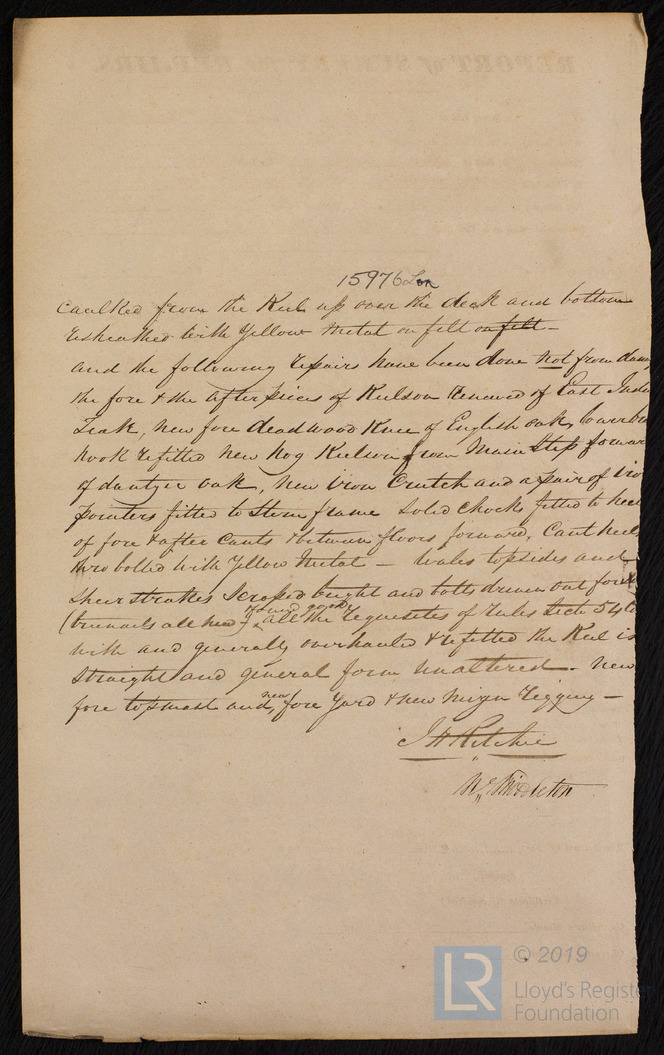 15976 Lon
caulked from the Keel up over the deck and bottom
resheathed with Yellow Metal on felt on felt –
and the following repairs have been done not from dama
the fore & the after pieces of Keelson renewed of East India
Teak, new fore deadwood Knee of English oak,
hook refitted new hog Keelson from Main Step forwar
of dantzic oak, new iron Crutch and a pair of iro
pointers fitted to Stern frame solid chocks fitted to heel
of fore & after cants & between floors forward, Cant heels
thro bolted with Yellow Metal – Wales topsides and
Sheerstrakes scraped bright and bolts driven out
(treenails all new) found good all the requisites of rules Sectn 54
with and generally overhauled & refitted the Keel is
straight and general form unaltered. New
fore topmast and new fore Yard & new Mizen rigging –
J H Ritchie
Wm Middleton
© 2019
LR
Lloyd's Register
Foundation